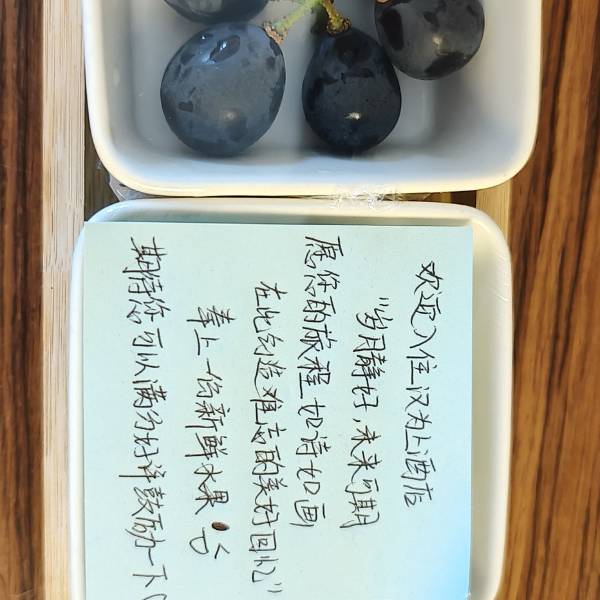 欢迎入住汉为上酒店
"岁月静好，未来可期
愿你的旅程如诗如画
在此创造难忘的美好回忆"
奉上一份新鲜水果
期待您可以满分好评鼓励一下